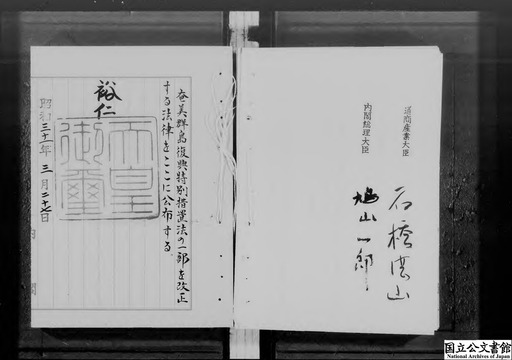 通商産業大臣
石橋湛山
内閣総理大臣
鳩山一郎
奄美群島復興特別措置法の一部を改正
する法律をここに公布する
裕仁
天皇
御璽
昭和三十一年三月二十七日
内閣
国立公文書館
National Archives of Japan